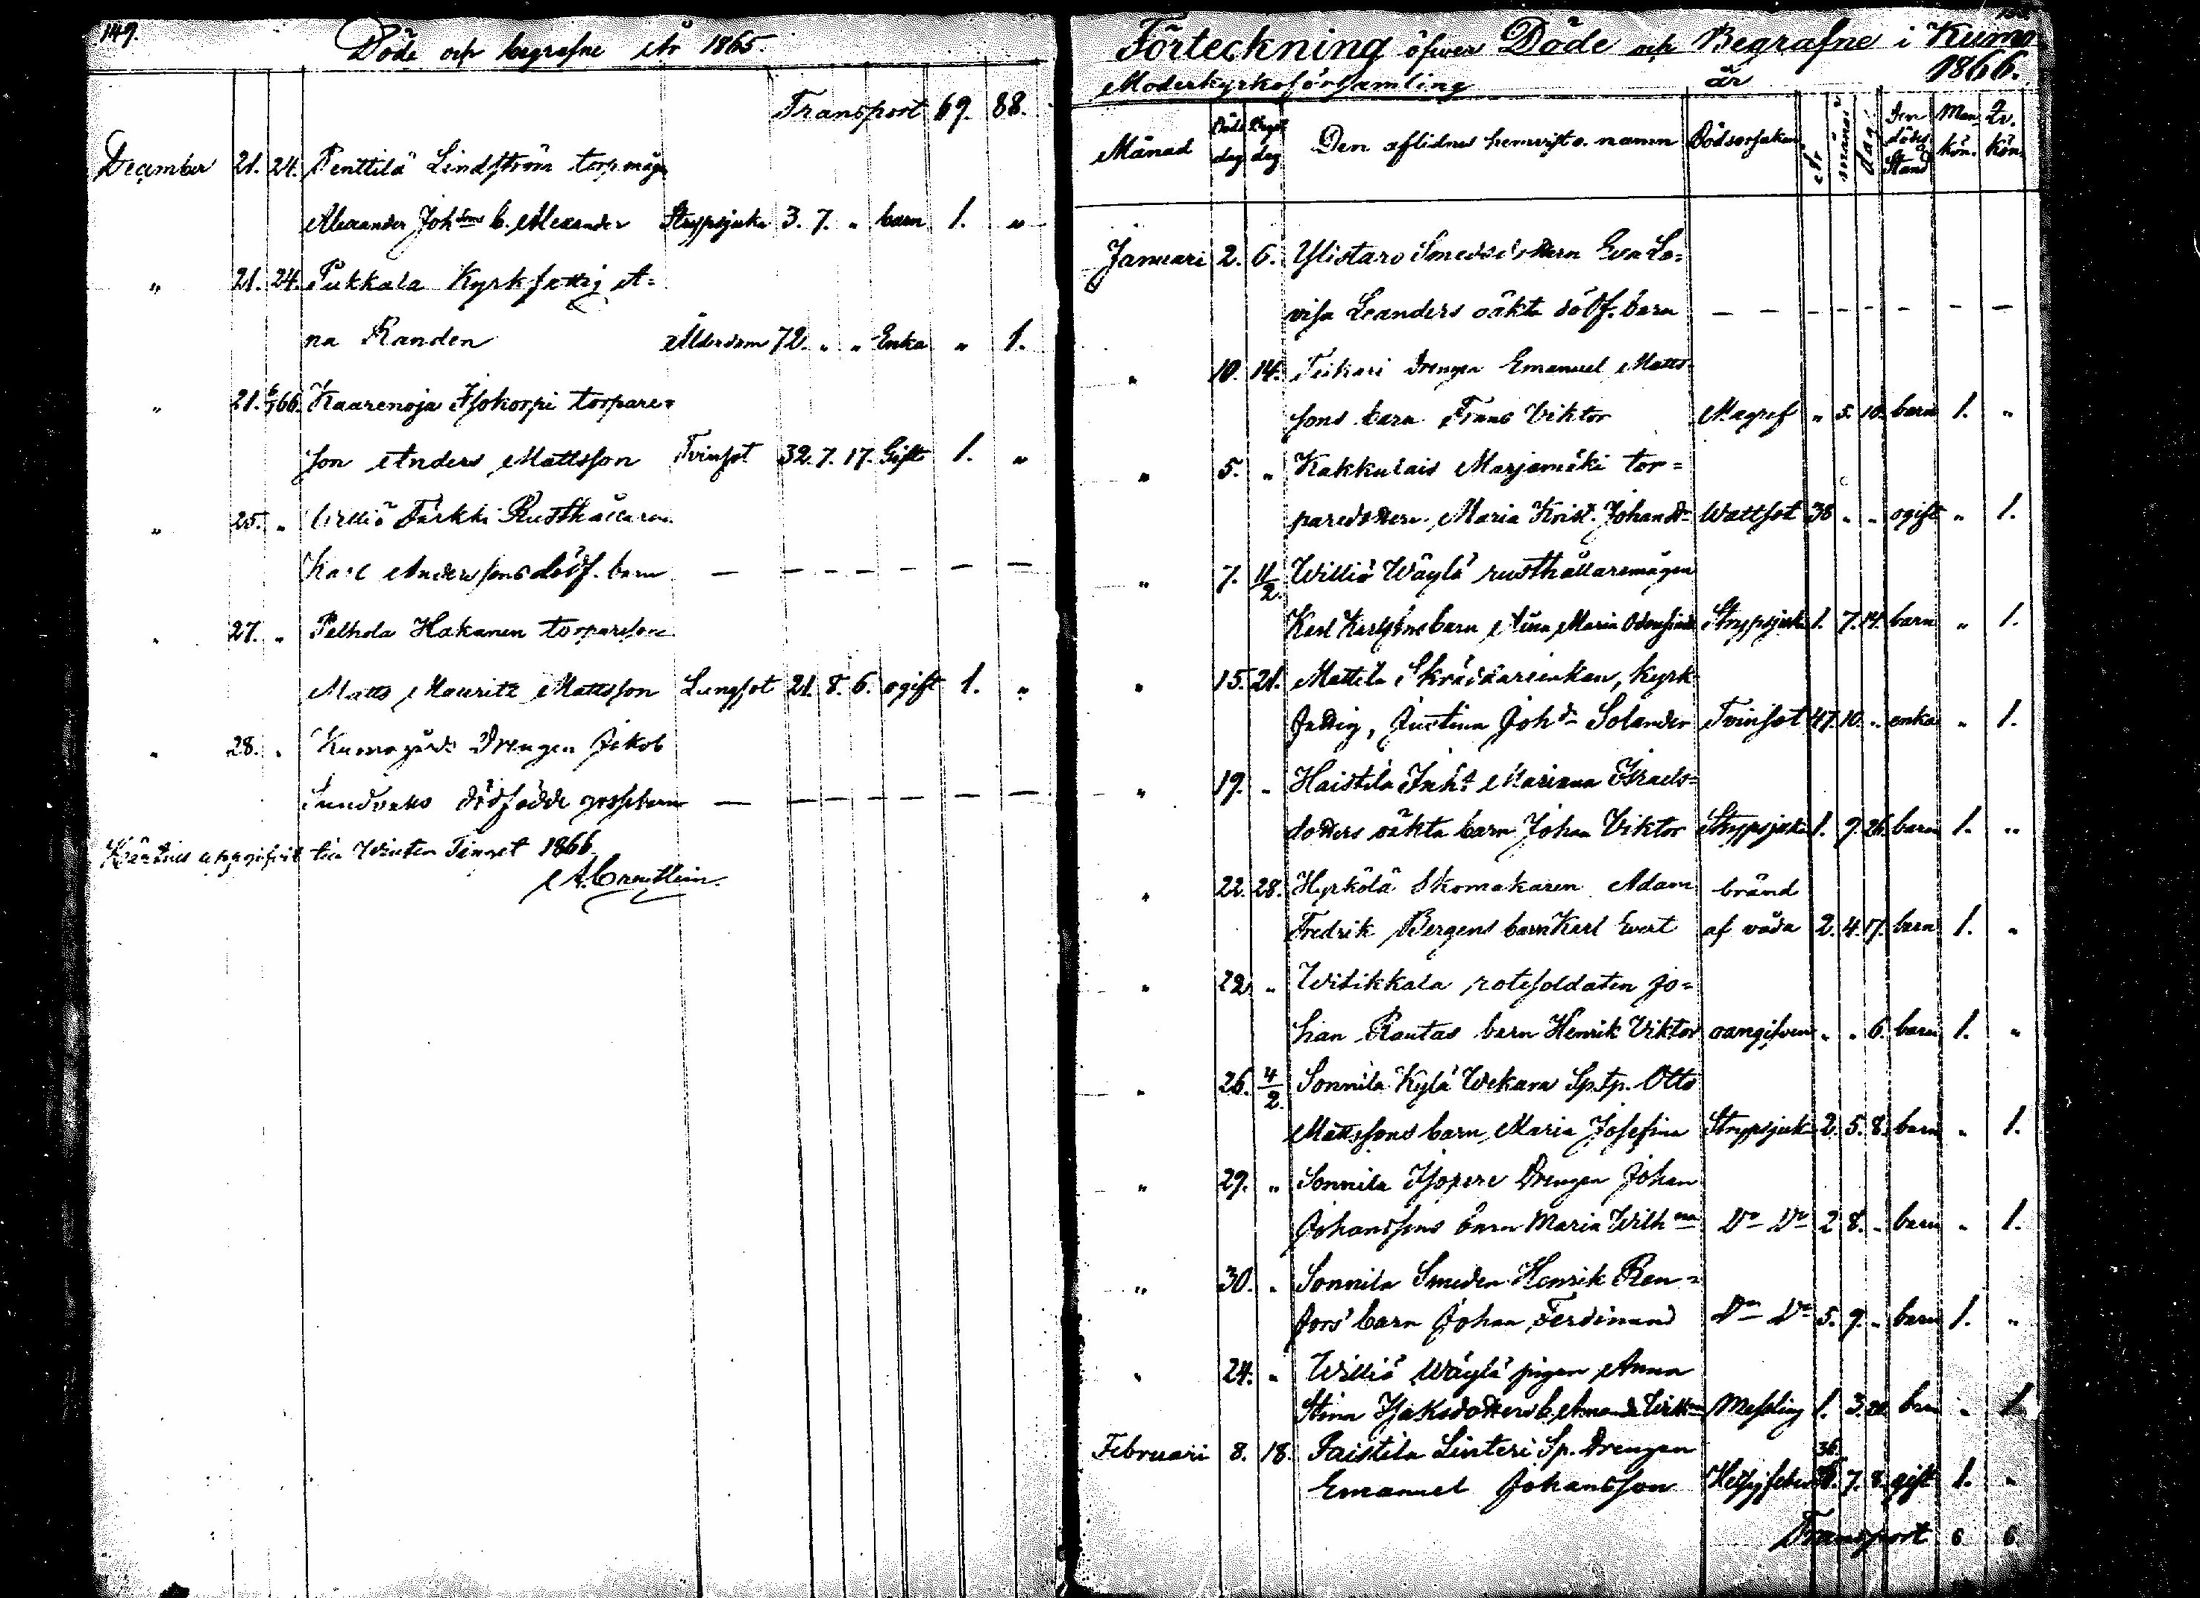 149.
Döde och begrafne År 1865.
Transport 69. 88.
December 21. 24. Penttilä Lindström torp.mågen
Alexander Johsons b. Alexander Strypsjuka 3. 7. " barn 1. "
" 21. 24. Pukkala Kyrkfattig A=
na Randen Ålderdom 72. " " Enka " 1.
" 21. 6/1 66. Kaarenoja Isokorpi torpare=
son Anders Mattsson Tvinsot 32. 7. 17. Gift 1. "
" 25. " Villiö Färkki Rusthållaren
Karl Anderssons dödf. barn — — — — — — —
" 27. " Pelhola Hakanen torparson
Matts Mauritz Mattsson Lungsot 21. 8. 6. ogift 1. "
" 28. " Kumogårds Drengen Jakob
Sundvalls dödfödde gossebarn — — — — — — —
uppgifvit till Winter Tinget 1866.
Förteckning öfver Döde och Begrafne i Kumo
Moderkyrkoförsamling år 1866.
Månad Döds dag Begr. dag Den aflidnes hemvist o. namn Dödsorsaken År månad dag Den dödes Stånd Man kön. Qv. kön.
Januari 2. 6. Ylistaro Smedsdottern Eva Lo=
visa Leanders oäkta dödf. barn — — — — — — — —
" 10. 14. Teikari Drengen Emanuel Matts
sons barn Frans Viktor Magref " 5. 10. barn 1. "
" 5. " Kakkulais Marjamäki tor=
paredottern Maria Krist. Johansdr Wattsot 38 " " ogift " 1.
" 7. 11/2. Williö Wäylä rusthållaremågen
Karl Karlssons barn Maria Strypsjuka 1. 7. 14. barn " 1.
" 15. 21. Mattila Skräddareenkan, Kyrk
fattig, Justina Johdr Solander Tvinsot 47. 10. " enka " 1.
" 19. " Haistila Inhs Mariana Israels=
dotters oäkta barn Johan Viktor Strypsjuka 1. 9. 26. barn 1. "
" 22. 28. Hyrkölä Skomakaren Adam bränd
Fredrik Bergens barn Karl Evert af våda 2. 4. 17. barn 1. "
" 22 " Witikkala rotesoldaten Jo=
han Rautas barn Henrik Viktor oangifven " " 6. barn 1. "
" 26. 4/2. Sonnila Kylä Wekara Sp.tp. Otto
Mattssons barn Maria Josefina Strypsjuka 2. 5. 8. barn " 1.
" 29. " Sonnila Isopere Drengen Johan
Johanssons barn Maria Wilhna Do Do 2 8. " barn " 1.
" 30. " Sonnila Smeden Henrik Ren=
fors' barn Johan Ferdinand Do Do 5. 9. " barn 1. "
" 24. " Williö Wäylä pigan Anna
Stina Isaksdotters b. Amanda Messling 1. 3. 20. barn " 1
Februari 8. 18. Paistila Linteri Sp. Drengen
Emanuel Johansson 36. 7. 8. gift 1. "
Transport 6 6.